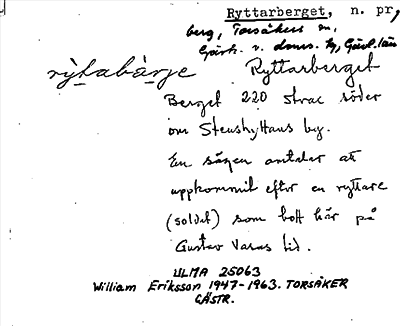 Ryttarberget, n. pr,
berg, Torsåkers sn,
Gästr. v. doms. hg, Gävl. län
rỳtabàrje Ryttarberget
Berget 220 strax söder
om Stenshyttans by.
En sägen antalar att
uppkommit efter en ryttare
(soldat) som bott här på
Gustav Vasas tid.
ULMA 25063
William Eriksson 1947-1963. TORSÅKER
GÄSTR.